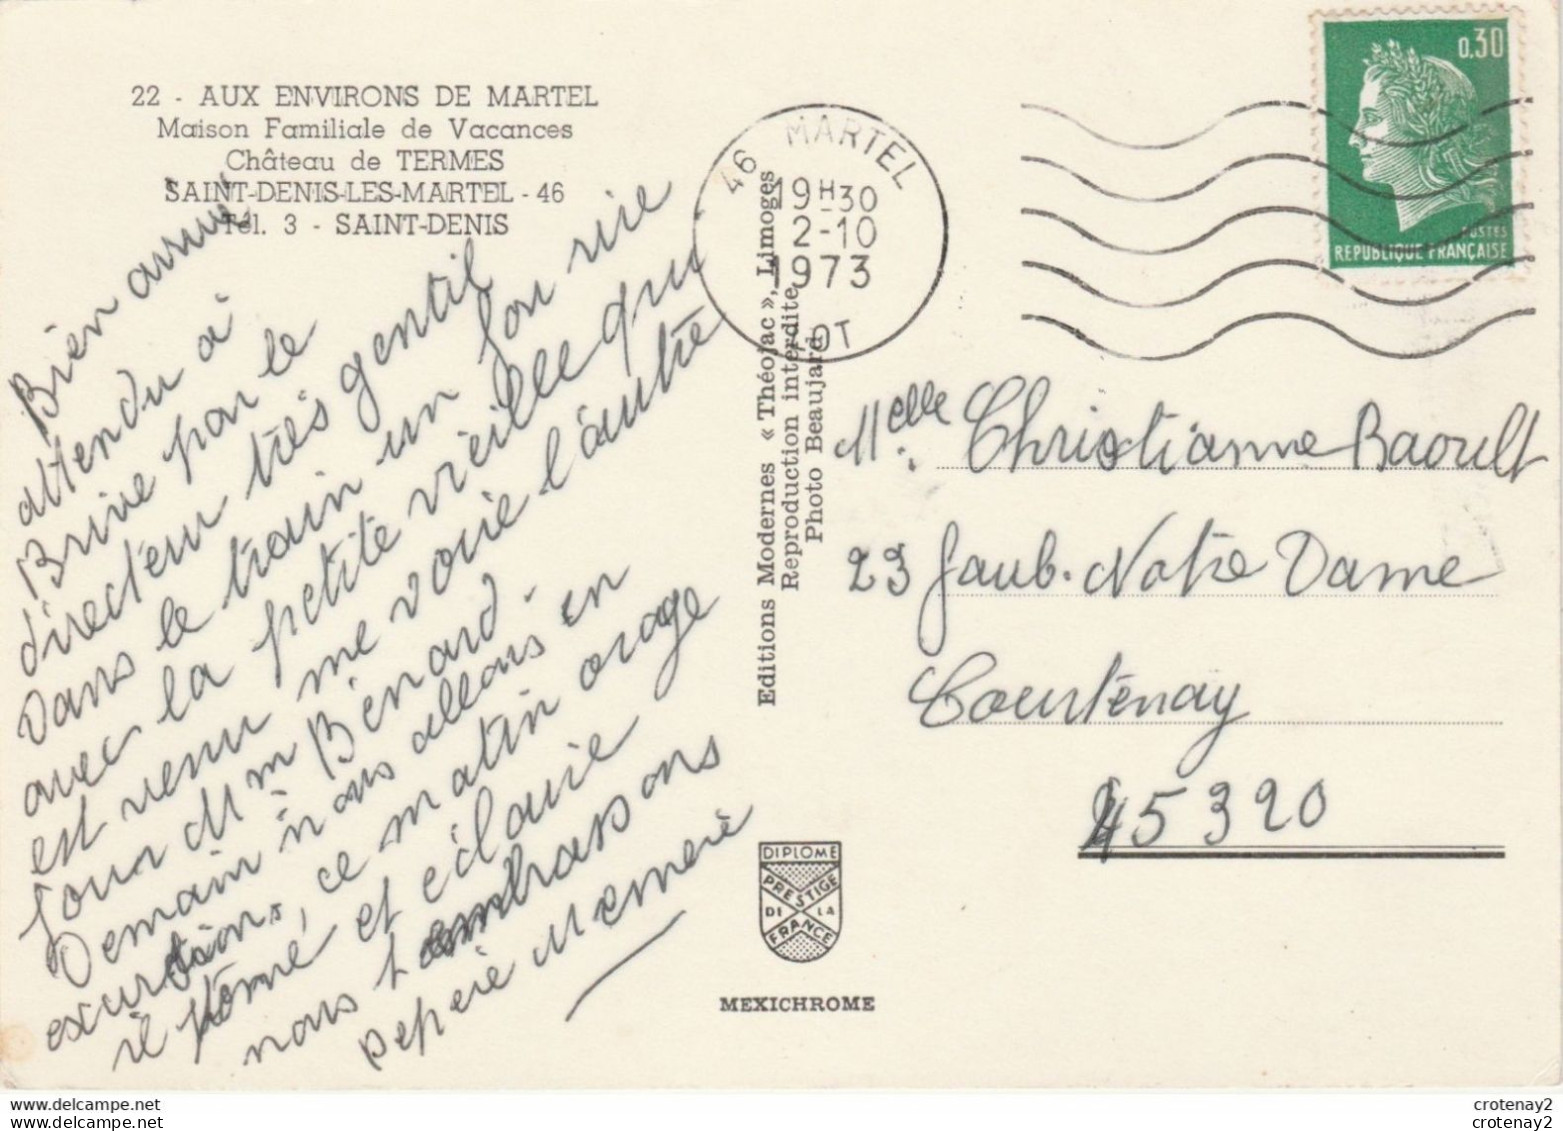 22 - AUX ENVIRONS DE MARTEL
Maison Familiale de Vacances
Château de TERMES
SAINT-DENIS-LES-MARTEL - 46
Tél. 3 - SAINT-DENIS
Bien arrivé
attendu à
Brive par le
directeur très gentil
Dans le train un fou rire
avec la petite vieille qui
est venu me voir l'autre
jour Mm Bénard.
Demain nous allons en
excursion, ce matin orage
il tonné et éclaire
nous t'embrassons
pepere Memere
Editions Modernes « Théojac », Limoges
Reproduction interdite
Photo Beaujard
46 MARTEL
19H30
2-10
1973
LOT
0,30
POSTES
REPUBLIQUE FRANÇAISE
Melle Christianne Raoult
23 faub. Notre Dame
Courtenay
45320
DIPLOME
PRESTIGE
DI LA
FRANCE
MEXICHROME
www.delcampe.net
www.delcampe.net
crotenay2
crotenay2